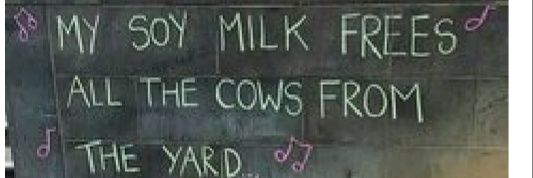 MY SOY MILK FREES
ALL THE COWS FROM
THE YARD...